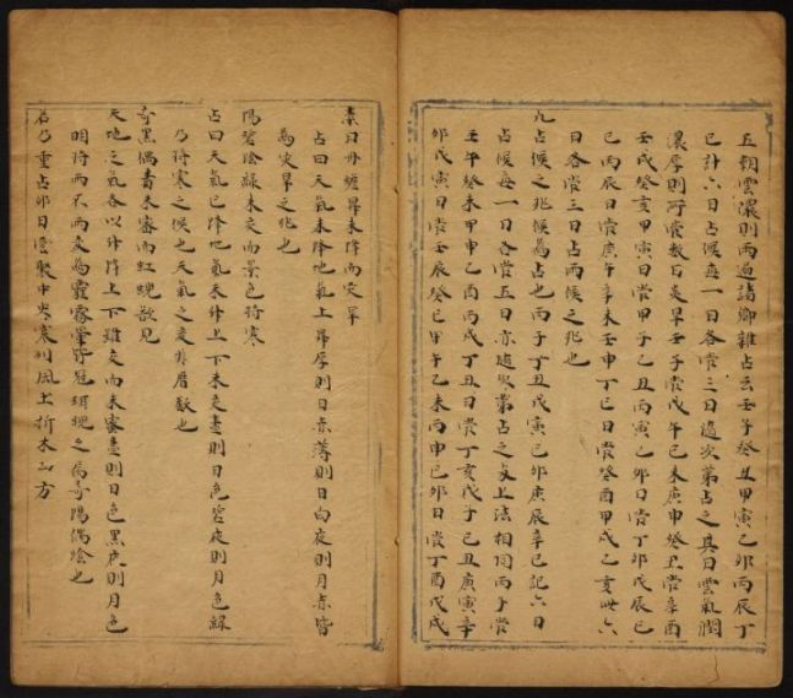 五朝雲濃則雨過諸鄉雜占云壬子癸丑甲寅乙卯丙辰丁
巳計六日占候每一日各管三日遇次第占之其日雲氣潤
濃厚則所管數日炎旱壬子管戊午己未庚申癸丑管辛酉
壬戌癸亥甲寅日管甲子乙丑丙寅乙卯日管丁卯戊辰己
巳丙辰日管庚午辛未壬申丁巳日管癸酉甲戌乙亥此六
日各管三日占雨候之兆也
九占候之兆候為占也丙子丁丑戊寅己卯庚辰辛巳記六日
占候每一日各管五日亦遇次第占之與上法相同丙子管
壬午癸未甲申乙酉丙戌丁丑日管丁亥戊子己丑庚寅辛
卯戊寅日管壬辰癸巳甲午乙未丙申己卯日管丁酉戊戌
素日丹纏昴未降而災旱
占曰天氣未降地氣上昇厚則日赤薄則日白夜則月赤皆
為災旱之兆也
陽碧陰綠未交而景色將寒
占曰天氣已降地氣未升上下未交盡則日色碧夜則月色綠
乃將寒之候也天氣之交非曆數也
奇黑偶青未審而虹蜺歇見
天地之氣各以升降上下雖交而未審盡則日色黑夜則月色
明將雨不雨交為霾霧蒙野冠珥蜺之屬奇陽偶陰也
右乃重占卯日雲聚中央寒川風上折木山方